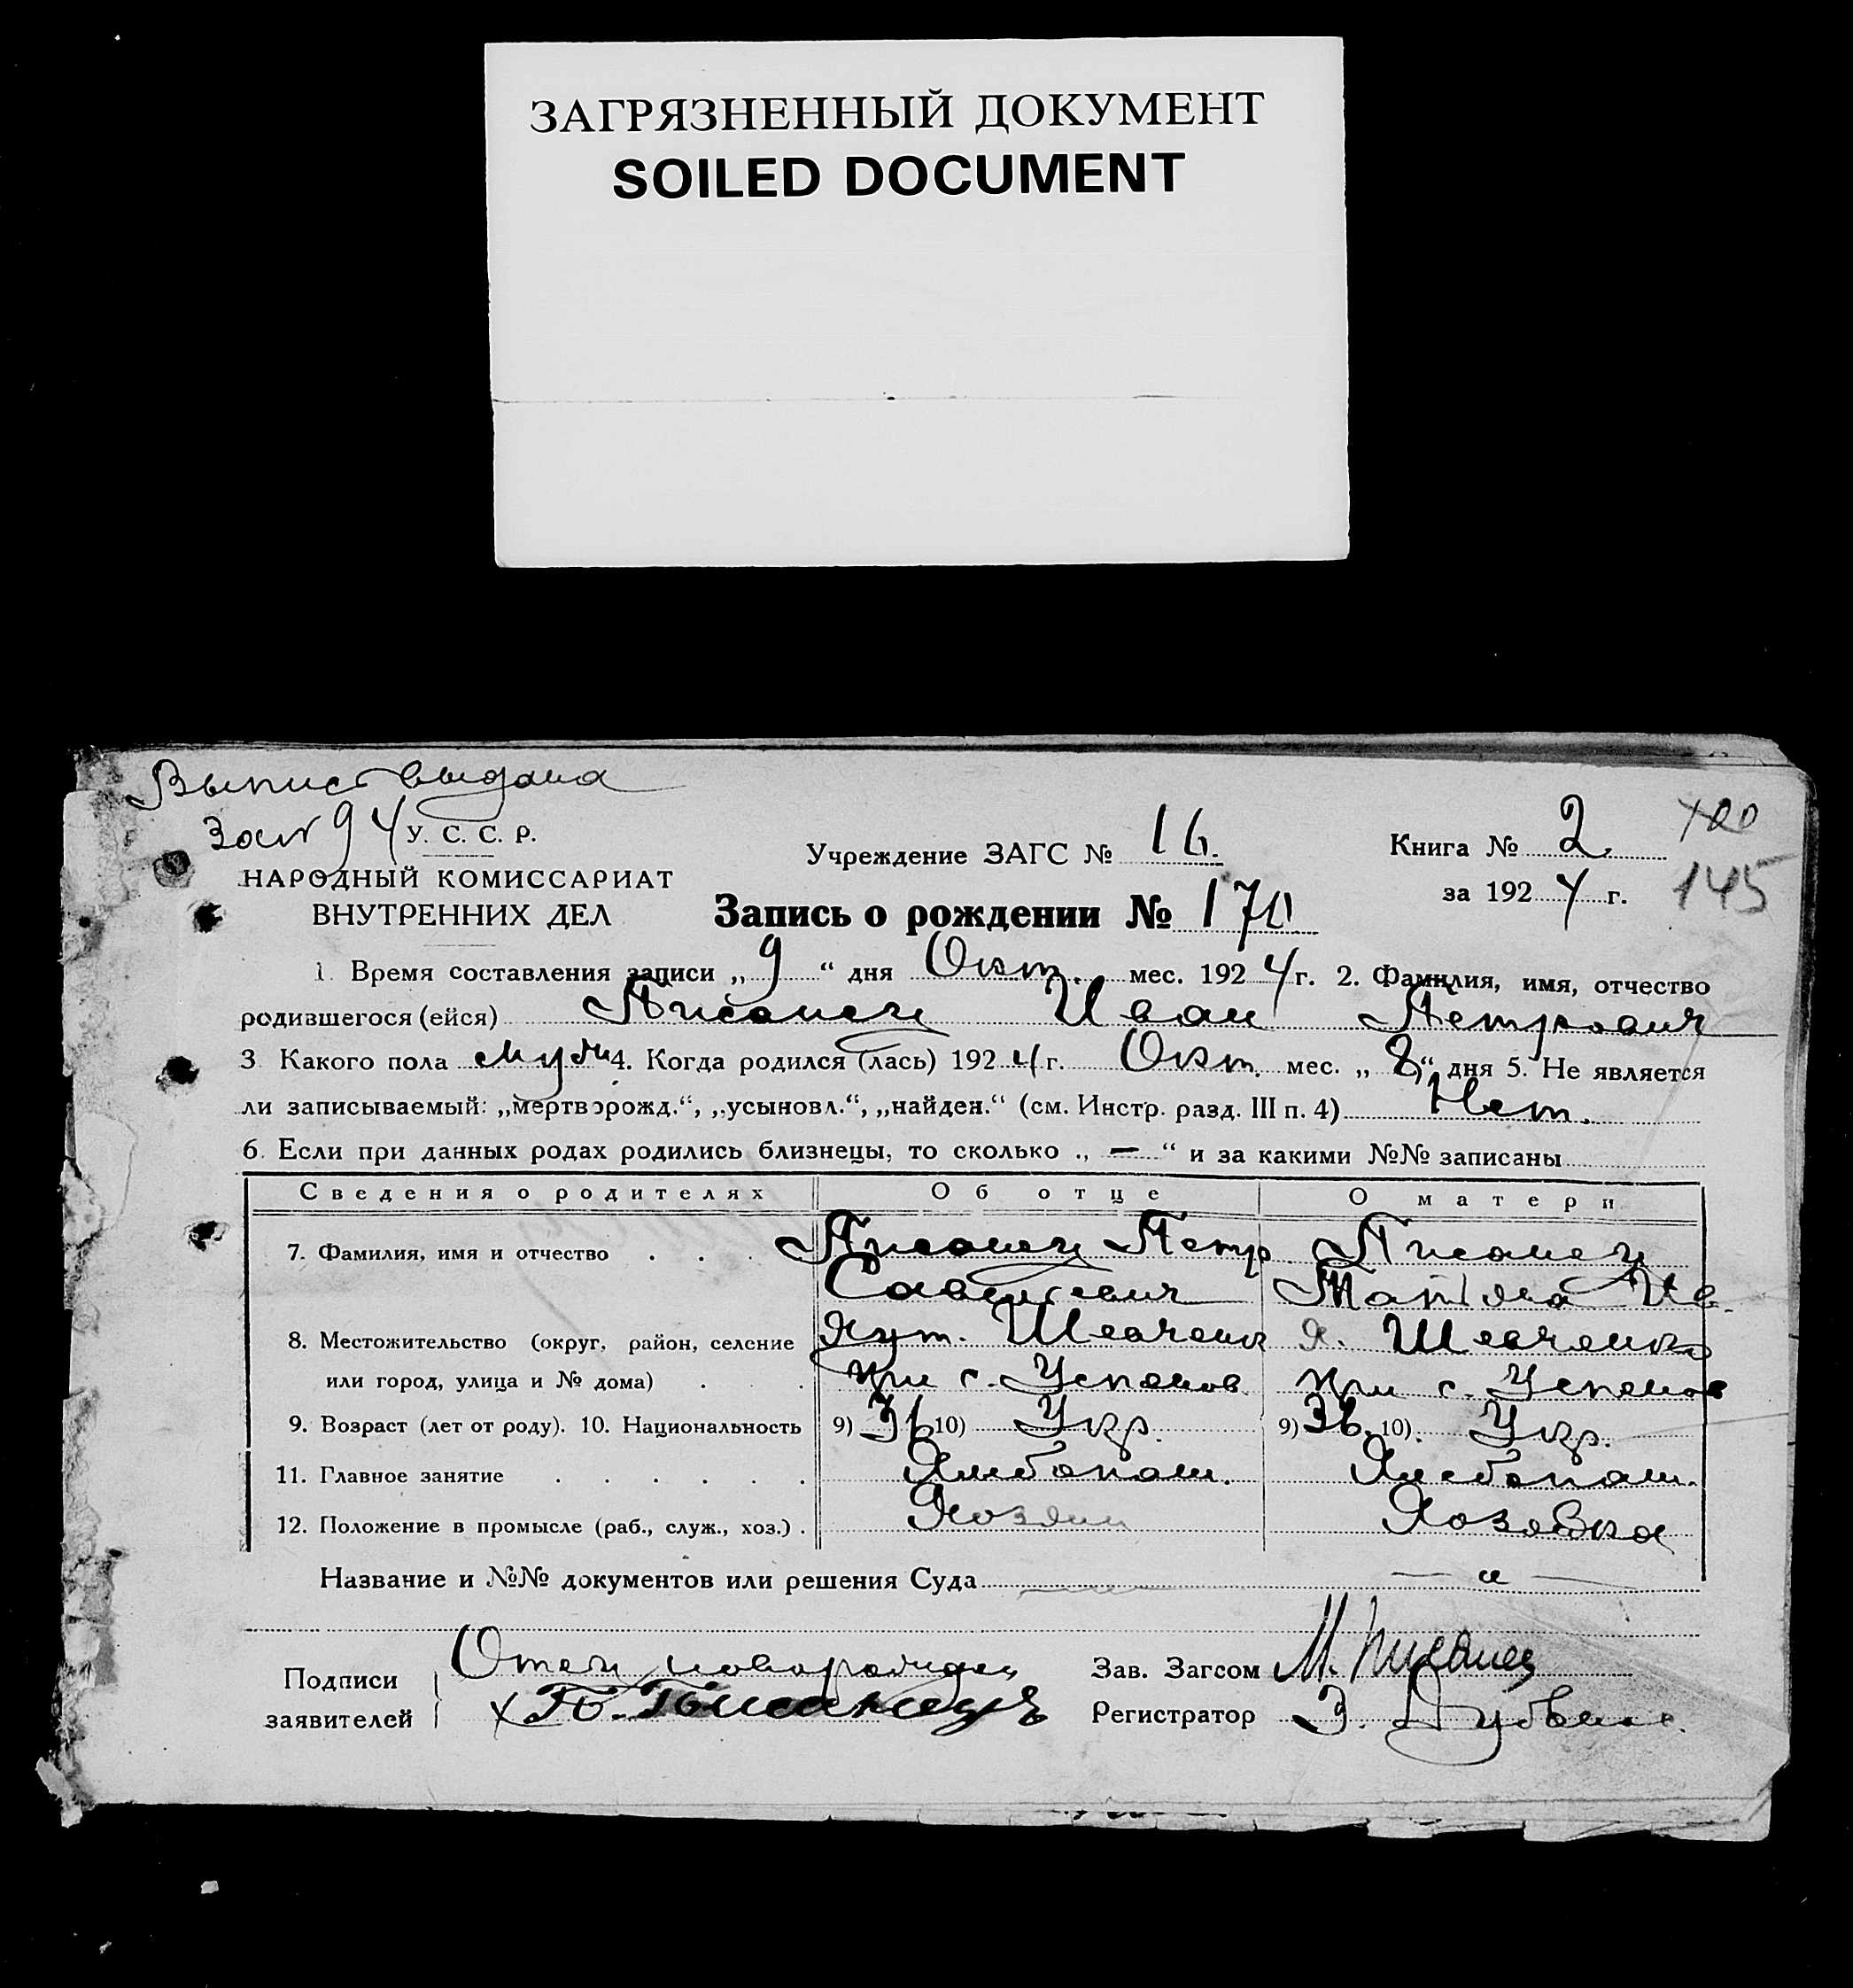 ЗАГРЯЗНЕННЫЙ ДОКУМЕНТ
SOILED DOCUMENT
Выпис выдана
94 У. С. С. Р.
Учреждение ЗАГС № 16.
Книга № 2.
НАРОДНЫЙ КОМИССАРИАТ
ВНУТРЕННИХ ДЕЛ
за 1924 г.
145
Запись о рождении № 170
1. Время составления записи „9“ дня Окт. мес. 1924 г. 2. Фамилия, имя, отчество
родившегося (ейся) Писанец Иван Петрович
3 Какого пола муж 4. Когда родился (лась) 1924 г. Окт. мес. „8“ дня 5. Не является
ли записываемый: „мертворожд.“, „усыновл.“, „найден.“ (см. Инстр. разд. III п. 4) Нет.
6. Если при данных родах родились близнецы, то сколько „—“ и за какими №№ записаны
Сведения о родителях Об отце О матери
7. Фамилия, имя и отчество . . . Писанец Петр Писанец
Ив.
8. Местожительство (округ, район, селение Хут. Шевченк Х. Шевченко
или город, улица и № дома) . . при с. Успенов. при с. Успенов
9. Возраст (лет от роду). 10. Национальность 9) 36 10) Укр. 9) 36. 10). Укр.
11. Главное занятие . . . . . . Хлебопаш. Хлебопаш.
12. Положение в промысле (раб., служ., хоз.) . Хозяин Хозяйка
Название и №№ документов или решения Суда — „ —
Подписи
заявителей
Отец новорожден
х П. Писанець
Зав. Загсом М. Писанец
Регистратор З.